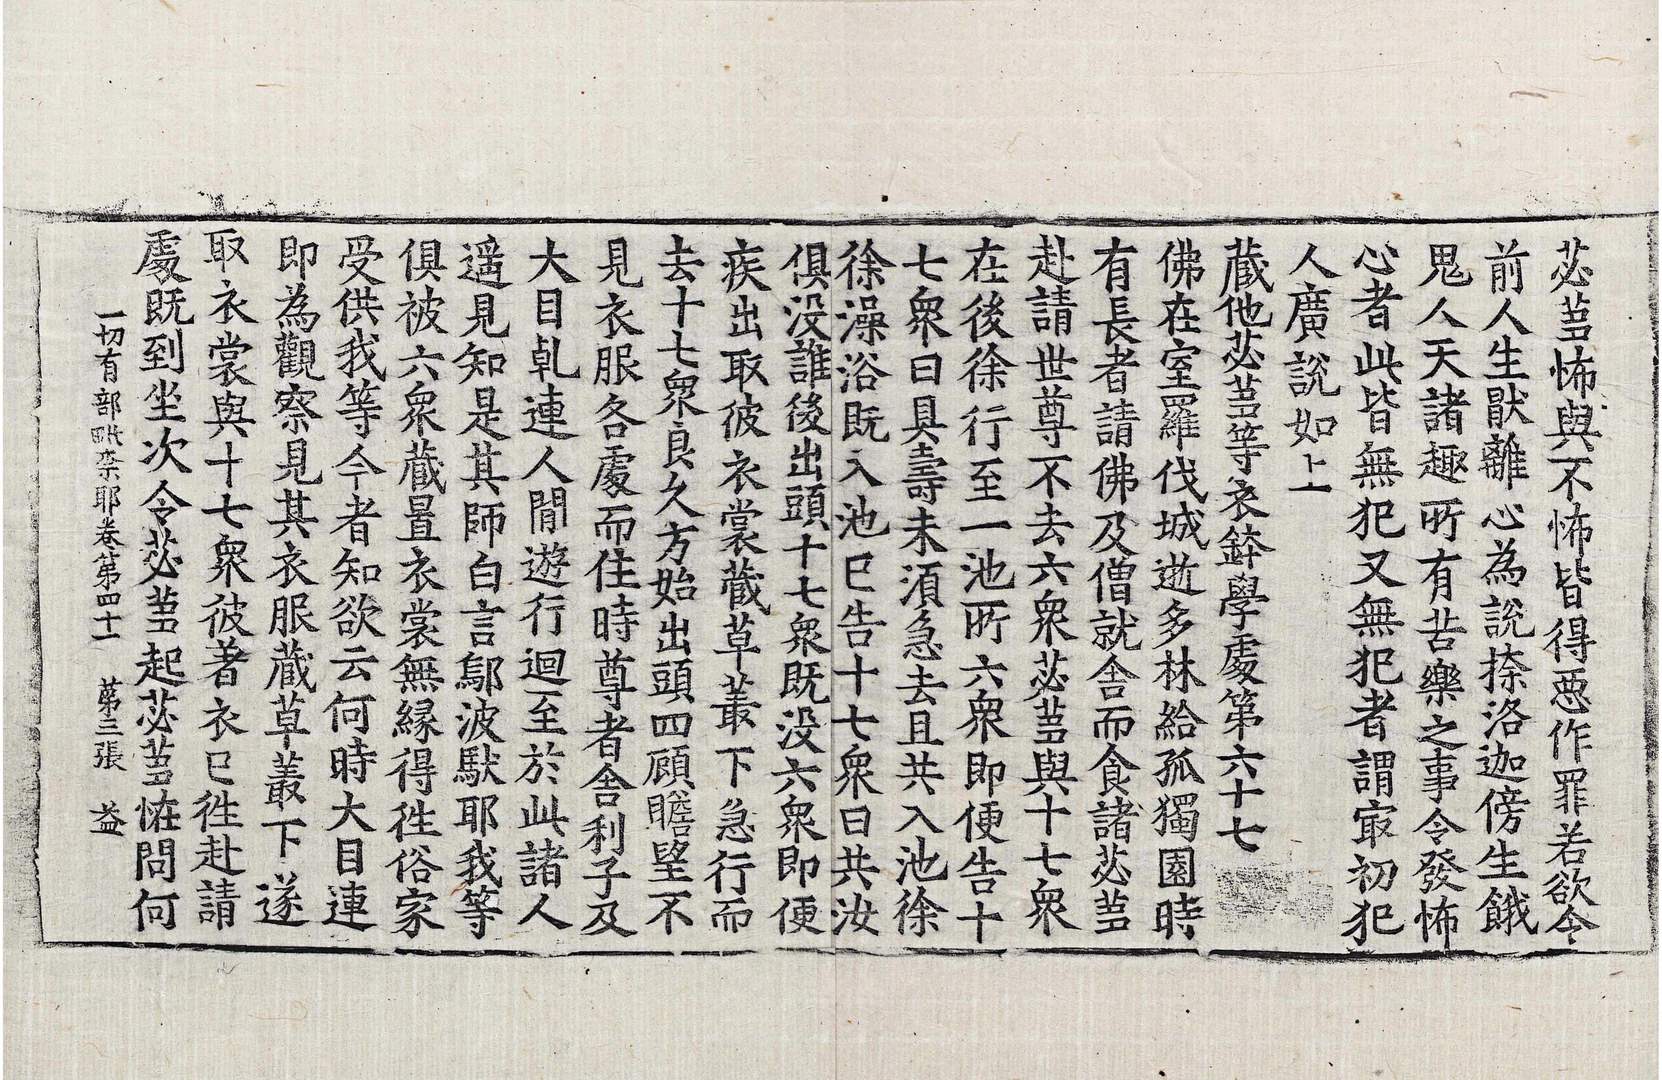 苾芻怖與不怖皆得惡作罪若欲令
前人生猒離心為說捺洛迦傍生餓
鬼人天諸趣所有苦樂之事令發怖
心者此皆無犯又無犯者謂㝡初犯
人廣說如上
藏他苾芻等衣鉢學處第六十七
佛在室羅伐城逝多林給孤獨園時
有長者請佛及僧就舍而食諸苾芻
赴請世尊不去六衆苾芻與十七衆
在後徐行至一池所六衆即便告十
七衆曰具壽未湏急去且共入池徐
徐澡浴既入池已告十七衆曰共汝
俱没誰後出頭十七衆既没六衆即便
疾出取彼衣裳藏草叢下急行而
去十七衆良久方始出頭四顧瞻望不
見衣服各處而住時尊者舍利子及
大目乹連人間遊行迴至於此諸人
遥見知是其師白言鄔波馱耶我等
俱被六衆藏置衣裳無緣得徃俗家
受供我等今者知欲云何時大目連
即為觀察見其衣服藏草叢下遂
取衣裳與十七衆彼著衣已徃赴請
處既到坐次令苾芻起苾芻恠問何
一切有部毗柰耶卷第四十一 第三張 益